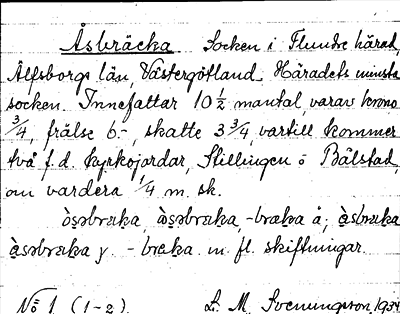 Åsbräcka Socken i Flundre härad,
Älfsborgs län, Västergötland. Häradets minsta
socken. Innefattar 10 ½ mantal, varav krono
¾, frälse 6.-, skatte 3 ¾, vartill kommer
två f.d. kyrkojordar, Stillingen o Bälstad,
om vardera ¼ m. sk.
m. fl. skiftningar.
No 1 (1-2) L. M. Svenungsson, 1934